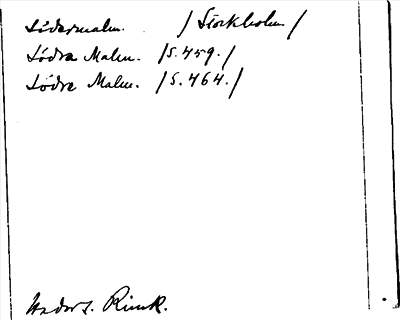 Södermalm. /Stockholm/
Södra Malm. /S. 459./
Södra Malm. /S. 464./
Rimk.